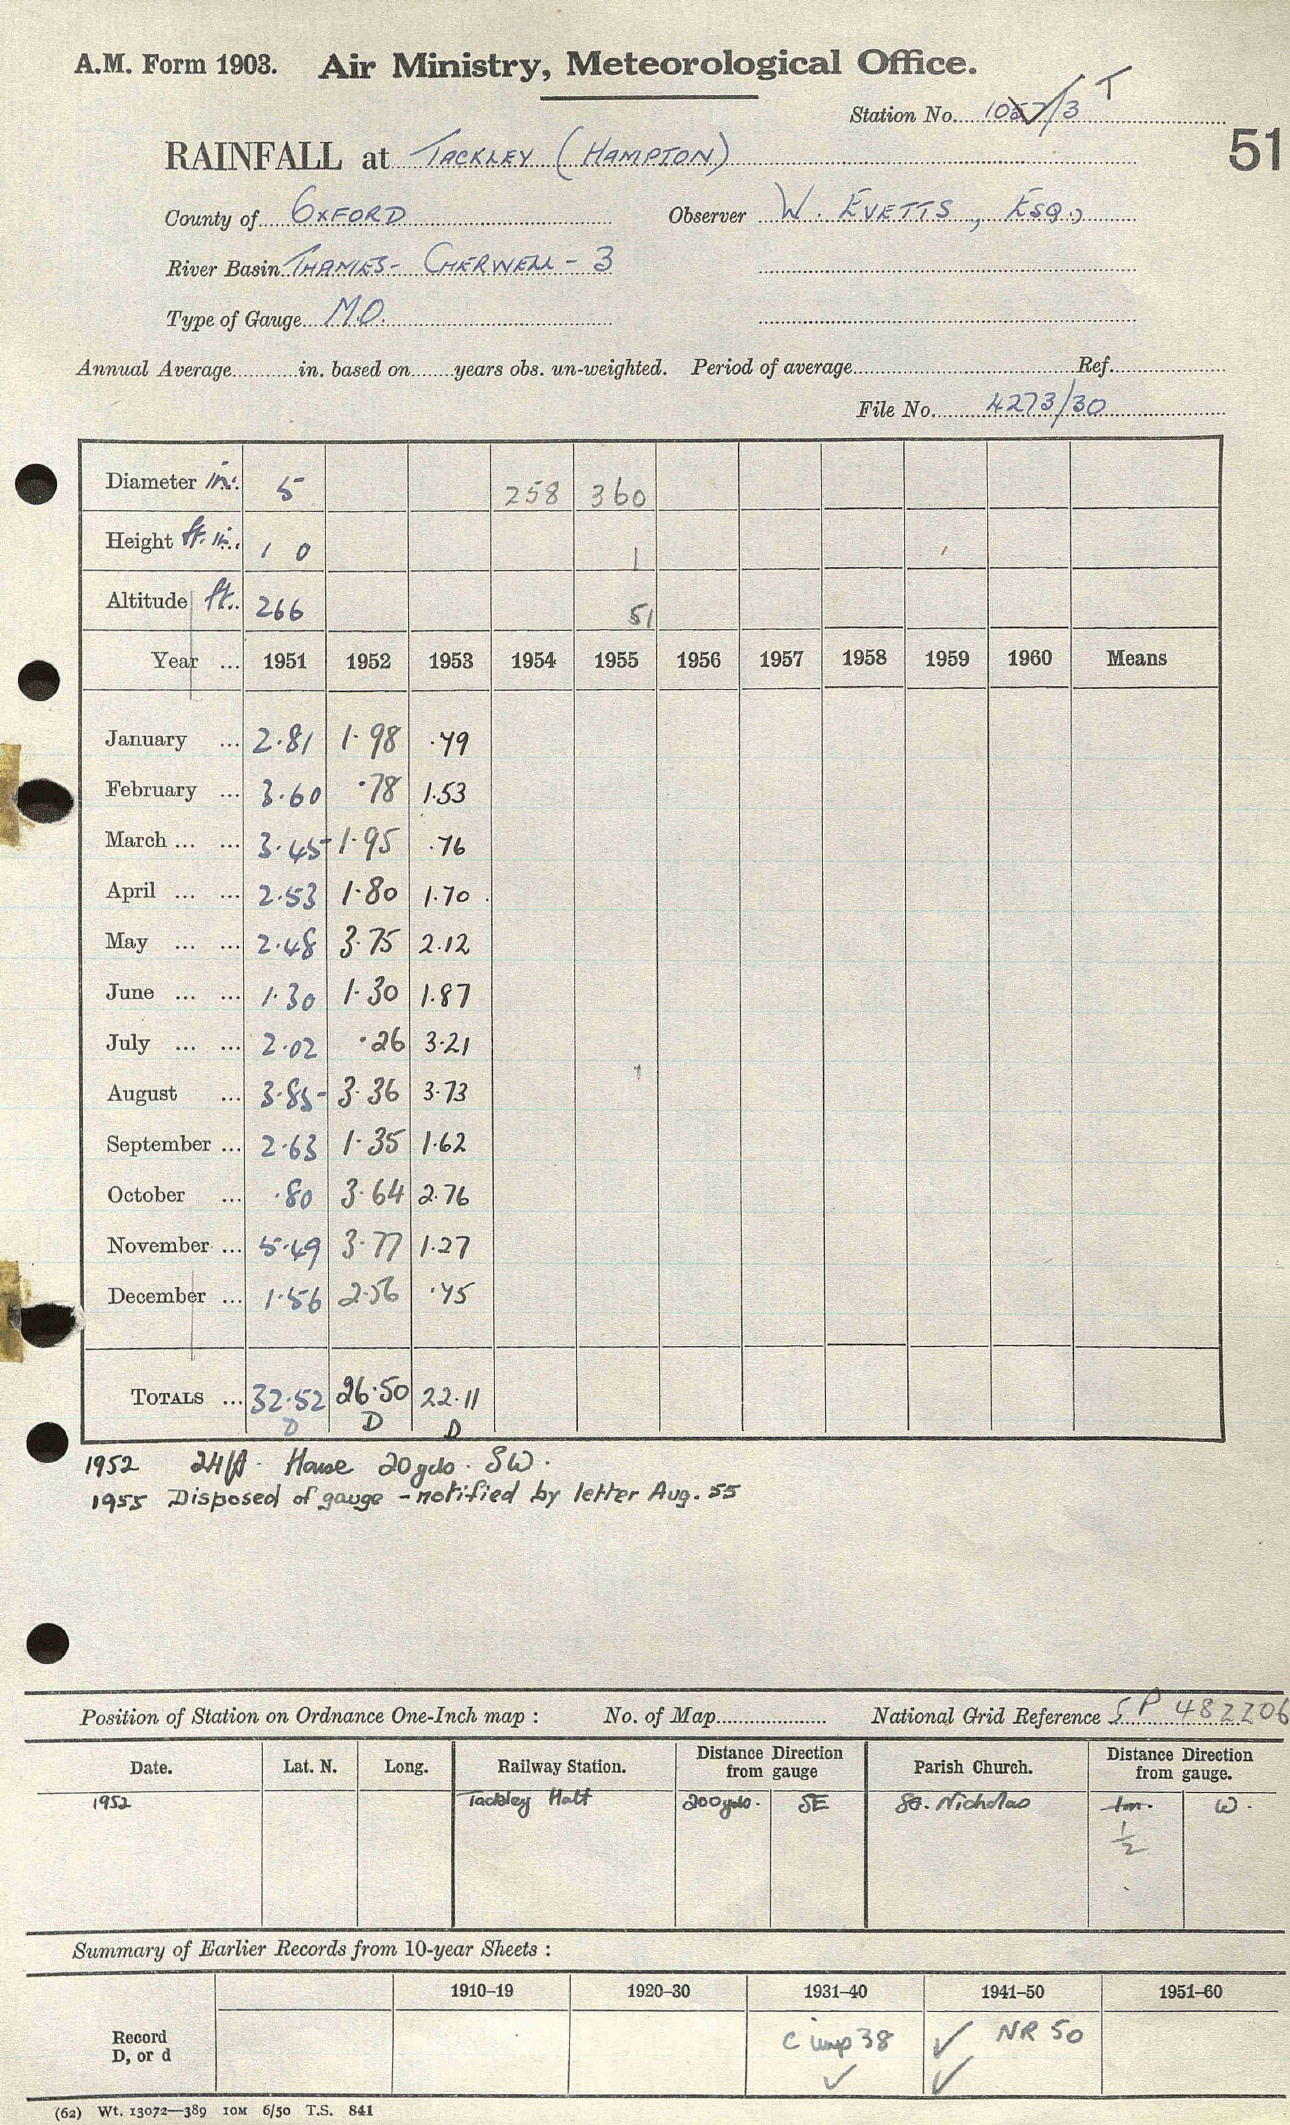 A.M. Form 1903. Air Ministry, Meteorological Office.
Station No. 1057/3 T
51
RAINFALL at TACKLEY (HAMPTON)
County of OXFORD Observer W. EVETTS, ESQ.,
River Basin THAMES - CHERWELL - 3
Type of Gauge M.O.
Annual Average in. based on years obs. un-weighted. Period of average Ref.
File No. 4273/30
Diameter in. 5 258 360
Height ft. in. 1 0 1
Altitude ft. 266 51
Year ... 1951 1952 1953 1954 1955 1956 1957 1958 1959 1960 Means
January ... 2.81 1.98 .79
February ... 3.60 .78 1.53
March ... ... 3.45 1.95 .76
April ... ... 2.53 1.80 1.70
May ... ... 2.48 3.75 2.12
June ... ... 1.30 1.30 1.87
July ... ... 2.02 .26 3.21
August ... 3.85 3.36 3.73
September ... 2.63 1.35 1.62
October ... .80 3.64 2.76
November ... 5.49 3.77 1.27
December ... 1.56 2.56 .75
TOTALS ... 32.52 26.50 22.11
D D D
1952 24ft. House 20yds. SW.
1955 Disposed of gauge - notified by letter Aug. 55
Position of Station on Ordnance One-Inch map : No. of Map National Grid Reference SP 482206
Date. Lat. N. Long. Railway Station. Distance Direction from gauge Parish Church. Distance Direction from gauge.
1952 Tackley Halt 200yds. SE St. Nicholas 1m. W.
1/2
Summary of Earlier Records from 10-year Sheets :
1910–19 1920–30 1931–40 1941–50 1951–60
Record D, or d C imp 38 ✓ ✓ NR 50 ✓
(62) Wt. 13072—389 10M 6/50 T.S. 841